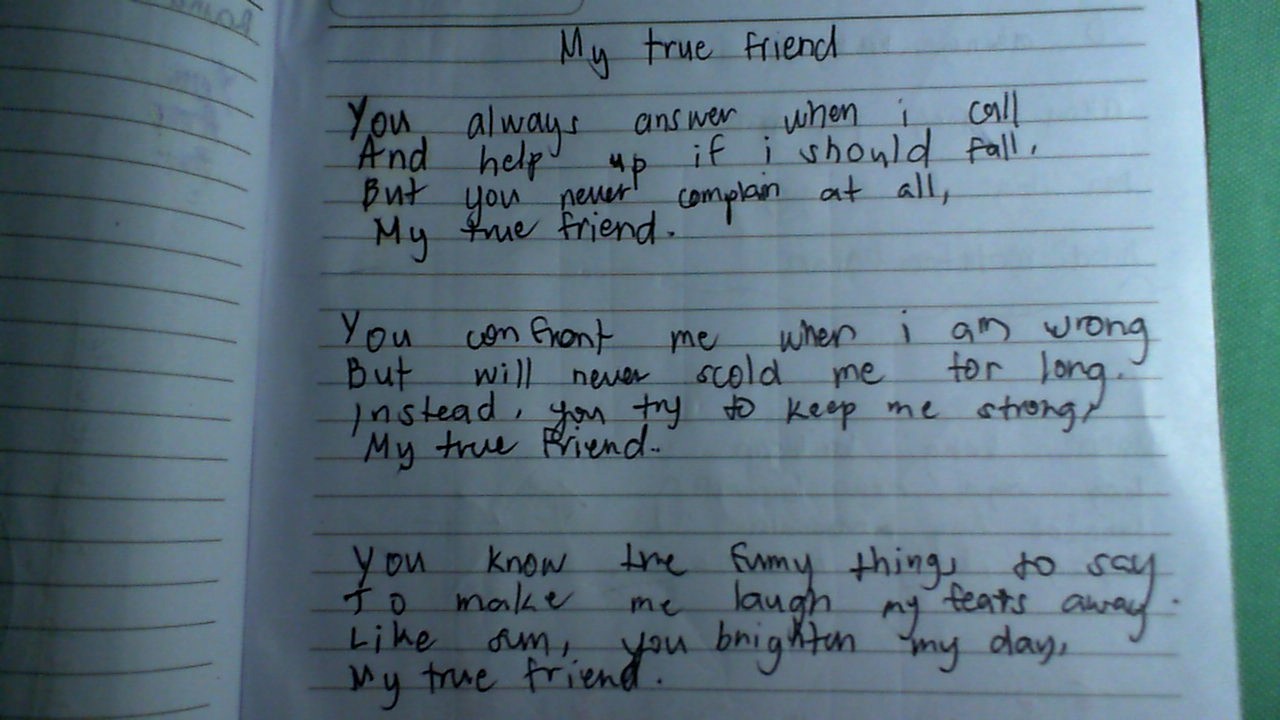 My true friend
You always answer when i call
And help up if i should fall.
But you never complain at all,
My true friend.
You confront me when i am wrong
But will never scold me for long.
Instead, you try to keep me strong,
My true Friend.
You know the funny things to say
To make me laugh my fears away.
Like sun, you brighten my day,
My true friend.